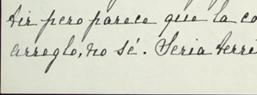 tir pero parece que la co
arreglo, no sé. Seria terri